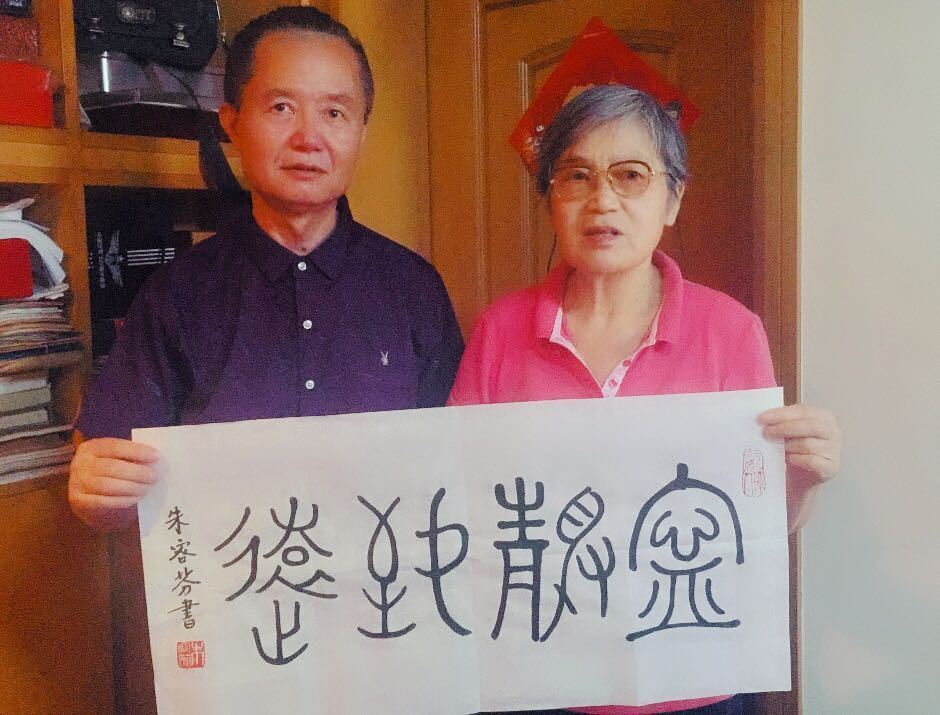 寧靜致遠
朱容芬書